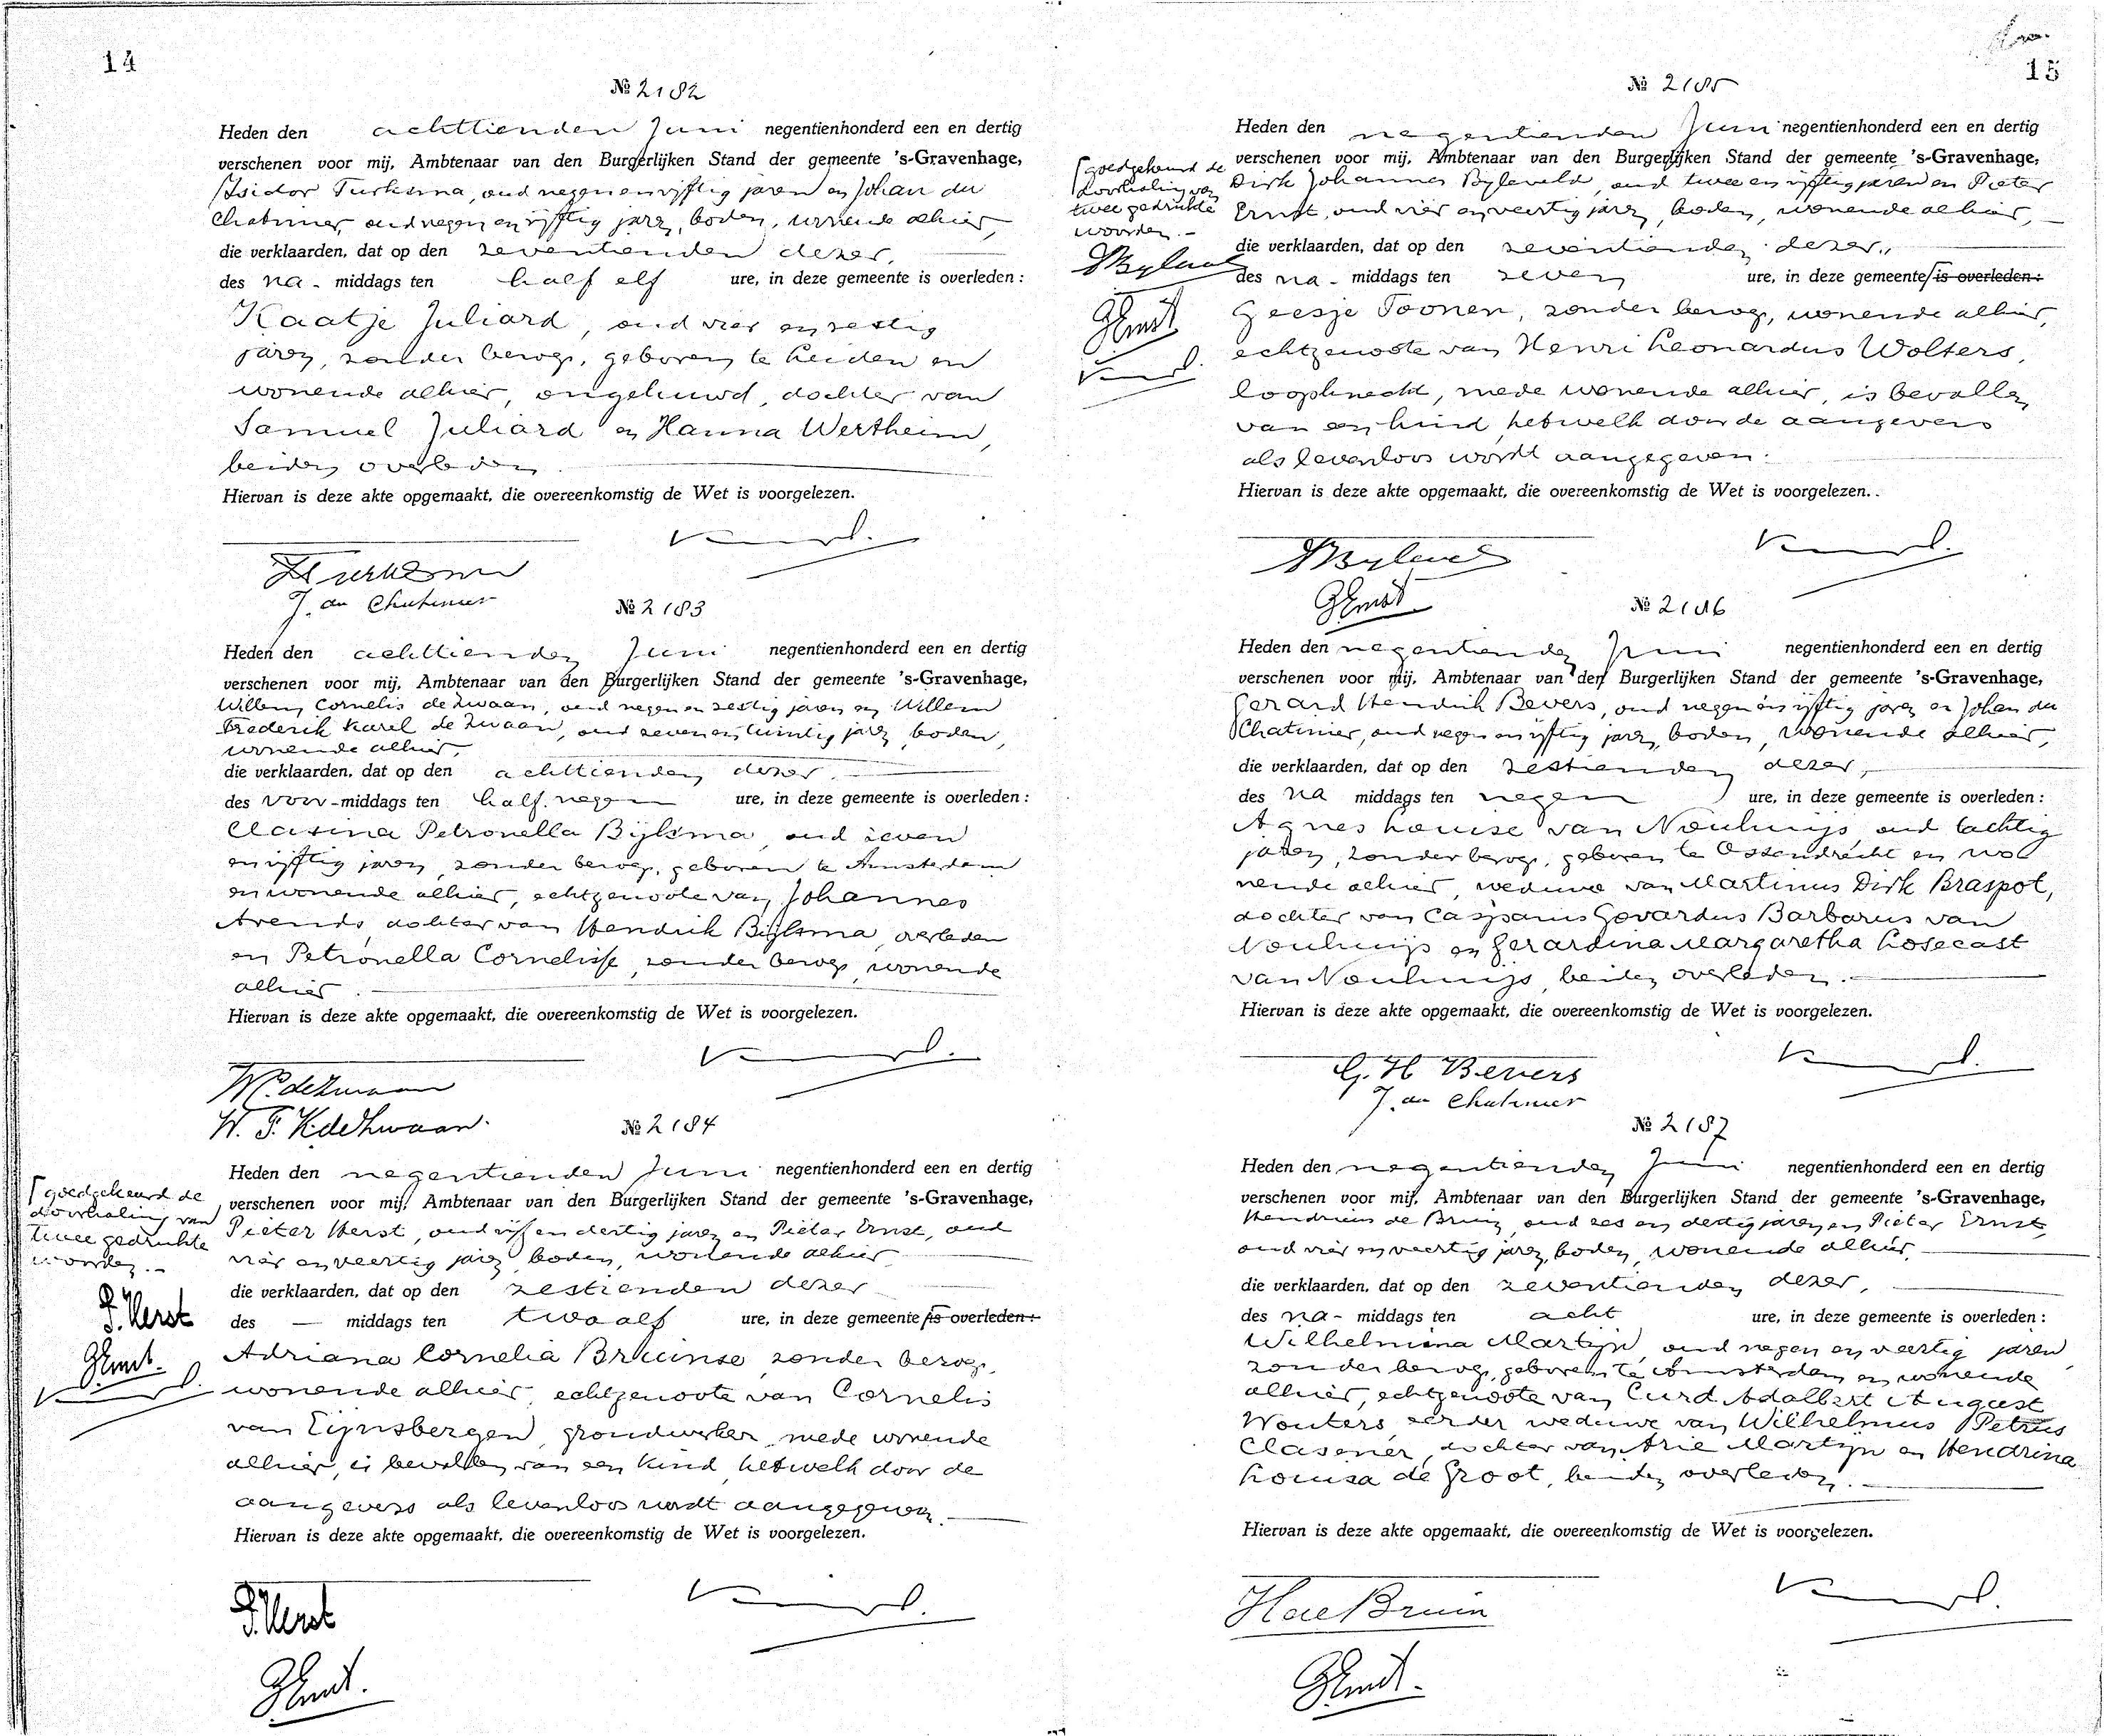 14
№ 2182
Heden den achttienden Juni negentienhonderd een en dertig
verschenen voor mij, Ambtenaar van den Burgerlijken Stand der gemeente 's-Gravenhage,
Isidor Turksma, oud negen en vijftig jaren en Johan du
Chatinier, oud negen en vijftig jaren, boden, wonende alhier,
die verklaarden, dat op den zeventienden dezer,
des na - middags ten half elf ure, in deze gemeente is overleden :
Kaatje Juliard, oud vier en zestig
jaren, zonder beroep, geboren te Leiden en
wonende alhier, ongehuwd, dochter van
Samuel Juliard en Hanna Wertheim,
beiden overleden.
Hiervan is deze akte opgemaakt, die overeenkomstig de Wet is voorgelezen.
J. du Chatinier
№ 2183
Heden den achttienden Juni negentienhonderd een en dertig
verschenen voor mij, Ambtenaar van den Burgerlijken Stand der gemeente 's-Gravenhage,
Willem Cornelis de Zwaan, oud negen en zestig jaren en Willem
Frederik Karel de Zwaan, oud zeven en twintig jaren, boden,
wonende alhier,
die verklaarden, dat op den achttienden dezer,
des voor-middags ten half negen ure, in deze gemeente is overleden :
Clasina Petronella Bijlsma, oud zeven
en vijftig jaren, zonder beroep, geboren te Amsterdam
en wonende alhier, echtgenoote van Johannes
Arends, dochter van Hendrik Bijlsma, overleden
en Petronella Cornelisse, zonder beroep, wonende
alhier.
Hiervan is deze akte opgemaakt, die overeenkomstig de Wet is voorgelezen.
W.C. de Zwaan
W. F. K. de Zwaan.
№ 2184
Heden den negentienden Juni negentienhonderd een en dertig
verschenen voor mij, Ambtenaar van den Burgerlijken Stand der gemeente 's-Gravenhage,
Pieter Herst, oud vijf en dertig jaren en Pieter Ernst, oud
vier en veertig jaren, boden, wonende alhier
die verklaarden, dat op den zestienden dezer
des — middags ten twaalf ure, in deze gemeente is overleden :
Adriana Cornelia Bruinse, zonder beroep,
wonende alhier, echtgenoote van Cornelis
van Eijnsbergen, grondwerker, mede wonende
alhier, is bevallen van een kind, hetwelk door de
aangevers als levenloos wordt aangegeven.
Hiervan is deze akte opgemaakt, die overeenkomstig de Wet is voorgelezen.
goedgekeurd de
doorhaling van
twee gedrukte
woorden.-
P. Herst
PErnst.
P. Herst
PErnst.
15
№ 2185
Heden den negentienden Juni negentienhonderd een en dertig
verschenen voor mij, Ambtenaar van den Burgerlijken Stand der gemeente 's-Gravenhage,
Dirk Johannes Byleveld, oud twee en vijftig jaren en Pieter
Ernst, oud vier en veertig jaren, boden, wonende alhier,
die verklaarden, dat op den zeventienden dezer,
des na - middags ten zeven ure, in deze gemeente is overleden :
Geesje Toonen, zonder beroep, wonende alhier,
echtgenoote van Henri Leonardus Wolters,
loopknecht, mede wonende alhier, is bevallen
van een kind, hetwelk door de aangevers
als levenloos wordt aangegeven.
Hiervan is deze akte opgemaakt, die overeenkomstig de Wet is voorgelezen.
goedgekeurd de
doorhaling van
twee gedrukte
woorden.-
PErnst
PErnst.
№ 2186
Heden den negentienden Juni negentienhonderd een en dertig
verschenen voor mij, Ambtenaar van den Burgerlijken Stand der gemeente 's-Gravenhage,
Gerard Hendrik Bevers, oud negen en vijftig jaren en Johan du
Chatinier, oud negen en vijftig jaren, boden, wonende alhier,
die verklaarden, dat op den zestienden dezer,
des na middags ten negen ure, in deze gemeente is overleden :
Agnes Louise van Nouhuijs, oud tachtig
jaren, zonder beroep, geboren te Ossendrecht en wo
nende alhier, weduwe van Martinus Dirk Braspot,
dochter van Casparus Govardus Barbarus van
Nouhuijs en Gerardina Margaretha Losecast
van Nouhuijs, beiden overleden.
Hiervan is deze akte opgemaakt, die overeenkomstig de Wet is voorgelezen.
G. H Bevers
J. du Chatinier
№ 2187
Heden den negentienden Juni negentienhonderd een en dertig
verschenen voor mij, Ambtenaar van den Burgerlijken Stand der gemeente 's-Gravenhage,
Hendricus de Bruin, oud zes en dertig jaren en Pieter Ernst,
oud vier en veertig jaren, boden, wonende alhier,
die verklaarden, dat op den zeventienden dezer,
des na - middags ten acht ure, in deze gemeente is overleden :
Wilhelmina Martijn, oud negen en veertig jaren,
zonder beroep, geboren te Amsterdam en wonende
alhier, echtgenoote van Curd Adalbert August
Wouters, eerder weduwe van Wilhelmus Petrus
Clasener, dochter van Arie Martijn en Hendrina
Louisa de Groot, beiden overleden.
Hiervan is deze akte opgemaakt, die overeenkomstig de Wet is voorgelezen.
HdeBruin
PErnst.